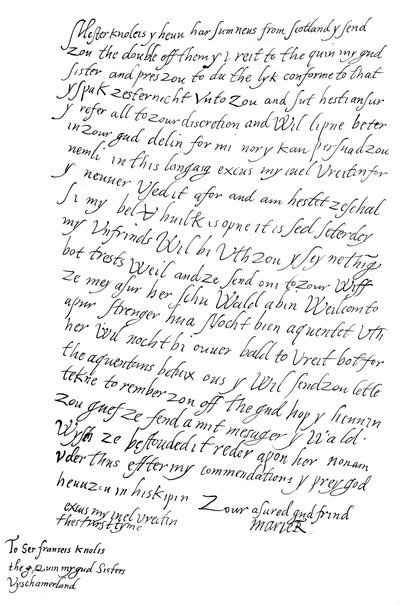 Mester knoleis y heuu har sum neus from scotland y send
zou the double off them y vreit to the quin my gud
sister and pres zou to du the lyk conforme to that
y spak zesternicht vnto zou and sut hesti ansur
y refer all to zour discretion and Wil lipne beter
in zour gud delin for mi nor y kan persuad zou
nemli in this langasg excus my iuel Vreitin for
y neuuer Vsed it afor and am hestet ze schal
si my bel Vhuilk is opne it is sed seterday
my Vnfrinds Wil bi Vth zou y sey nething
bot trests Weil and ze send oni to zour Wiff
ze mey asur her schu Wald a bin Weilcom to
apur strenger hua Nocht bien aquentet Vth
her Wil nocht bi ouuer bald to Vreit bot for
the aquentans betuix ous y Wil send zou letle
tekne to rember zou off the gud hop y heuu in
zou guef ze fend a mit mesager y Wald
Wysh ze bestouded it reder apon her non ani
vder thus effter my commendations y prey god
heuu zou in his kipin
Zour asured gud frind
excus my iuel vreitin
thes furst tyme
Marie R
To Ser franseis knolis
the g quin my gud Sisters
Vyschamerland